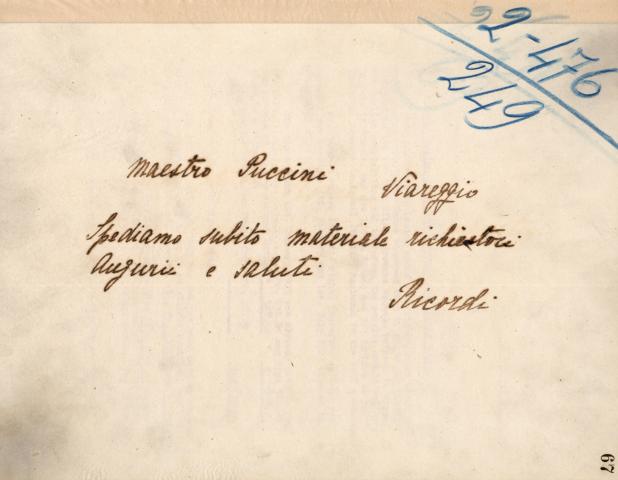 2-476
249
Maestro Puccini Viareggio
Spediamo subito materiale richiestoci
Augurii e saluti
Ricordi
67